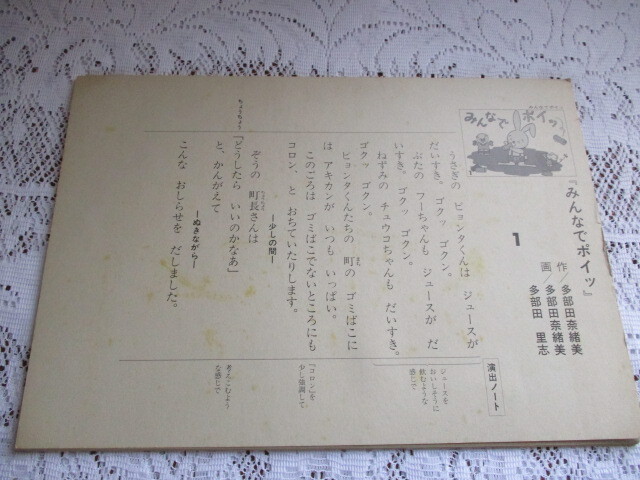 みんなで ポイッ
『みんなでポイッ』
作／多部田奈緒美
画／多部田奈緒美
多部田 里志
1
うさぎの ピョンタくんは ジュースが
だいすき。ゴクッ ゴクン。
ぶたの フーちゃんも ジュースが だ
いすき。ゴクッ ゴクン。
ねずみの チュウコちゃんも だいすき。
ゴクッ ゴクン。
ピョンタくんたちの 町の ゴミばこに
は アキカンが いつも いっぱい。
このごろは ゴミばこでないところにも
コロン、と おちていたりします。
―少しの間―
ぞうの 町長さんは
ちょうちょう
『どうしたら いいのかなあ』
と、かんがえて
―ぬきながら―
こんな おしらせを だしました。
演出ノート
ジュースを
おいしそうに
飲むような
感じで
『コロン』を
少し強調して
考えこむよう
な感じで